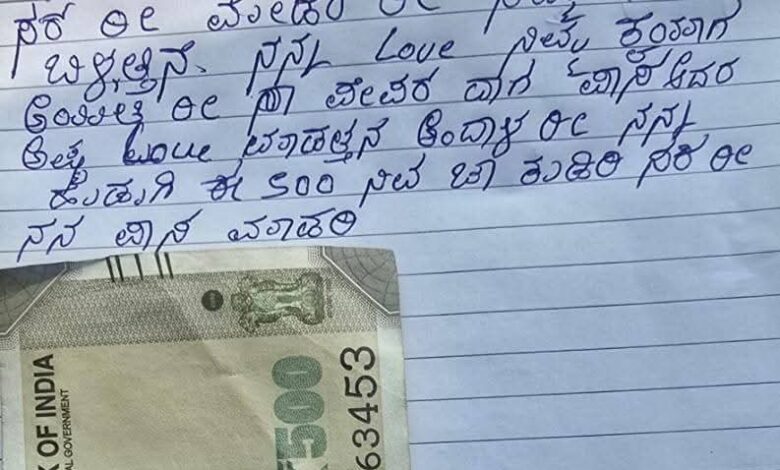 ಸರ ರೀ
ಬಿಳ್ಳತ್ತಿನ. ನನ್ನ Love ನಿಮ್ಮ ಕಂಯಾಗ
ಐತಿ ರೀ ನಾ ಪೇಪರ ದಾಗ ಪಾಸ ಆದರ
ಅಷ್ಟ Love ಮಾಡತ್ತನ ಅಂದಾಳ ರೀ ನನ್ನ
ಹುಡುಗಿ ಈ 500 ನಿವ ಚಾ ಕುಡಿರಿ ಸರ ರೀ
ನನ ಪಾಸ ಮಾಡರಿ
OF INDIA
AL GOVERNMENT
₹500
63453